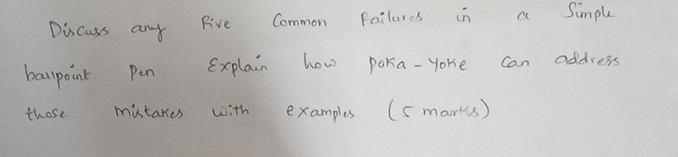 Discuss any Five Common Failures in a Simple
ballpoint Pen Explain how POKA-YOKE can address
those mistakes with examples (5 marks)